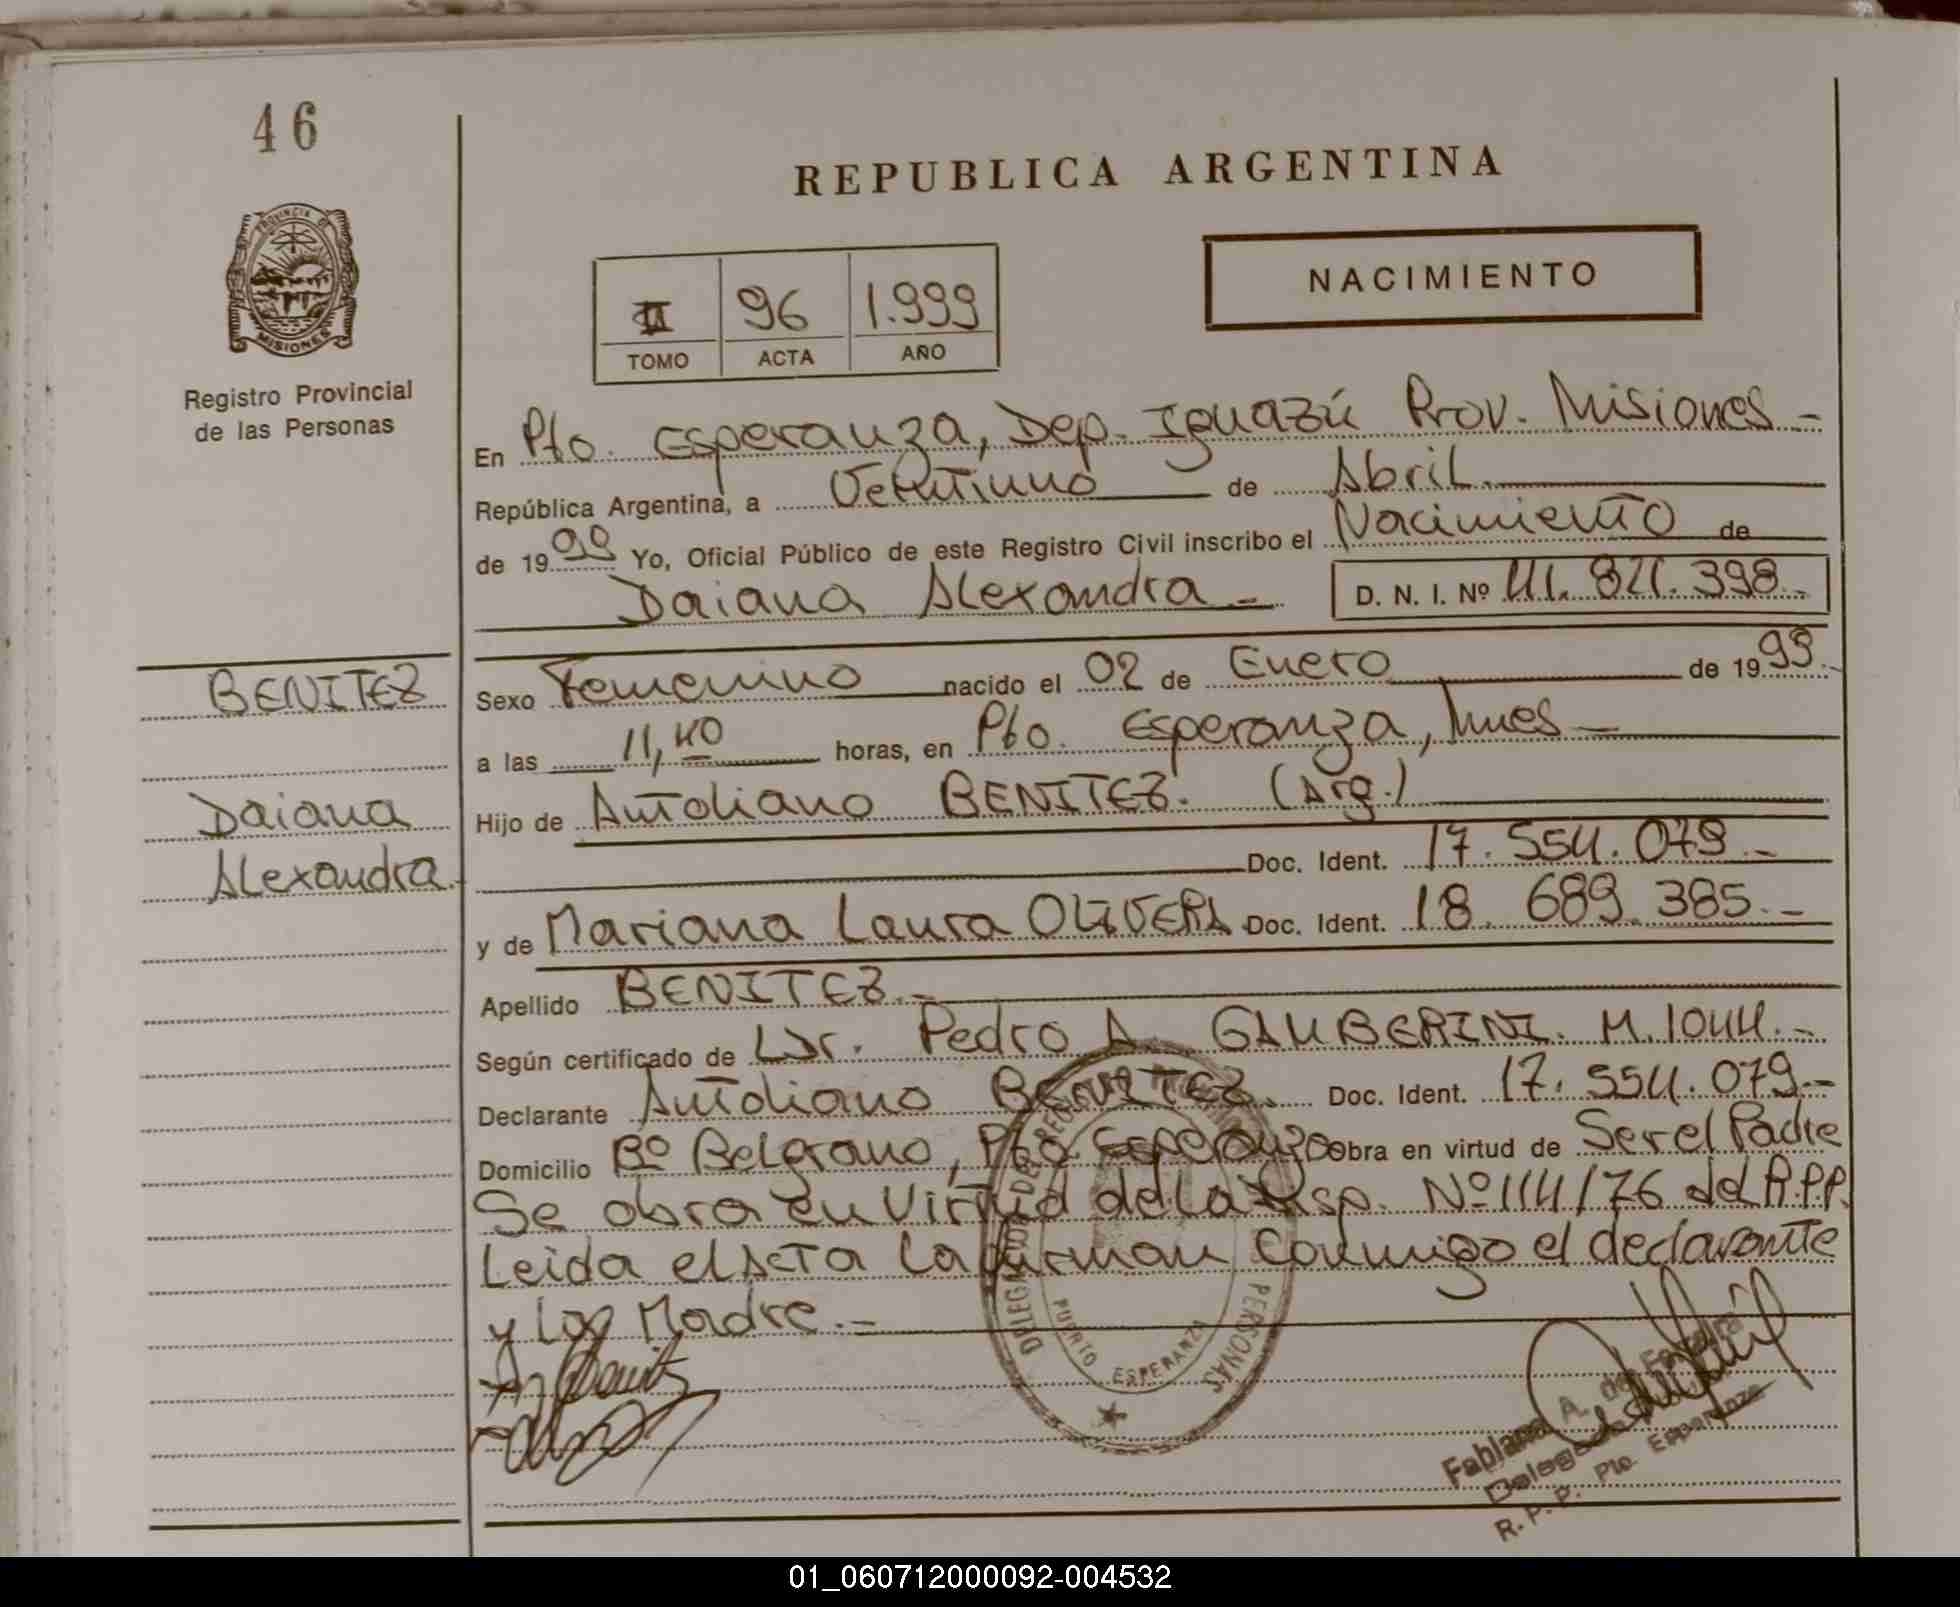 46
REPUBLICA ARGENTINA
NACIMIENTO
PROVINCIA DE
MISIONES
II 96 1.999
TOMO ACTA AÑO
Registro Provincial
de las Personas
En Pto. Esperanza, Dep. Iguazú Prov. Misiones -
República Argentina, a Veintiuno de Abril.
de 1999 Yo, Oficial Público de este Registro Civil inscribo el Nacimiento de
Daiana Alexandra - D. N. I. Nº 41. 821. 398.-
BENITEZ
Sexo Femenino nacido el 02 de Enero de 1999.-
a las 11,40 horas, en Pto. Esperanza, Mnes -
Daiana
Hijo de Antoliano BENITEZ. (Arg.)
Alexandra.-
Doc. Ident. 17. 554. 079.-
y de Mariana Laura OLIVERA Doc. Ident. 18. 689. 385.-
Apellido BENITEZ.-
Según certificado de Dr. Pedro A. GAMBERINI. M. 1044.-
Declarante Antoliano BENITEZ. Doc. Ident. 17. 554. 079.-
Domicilio Bº Belgrano, Pto Esperanza Obra en virtud de Ser el Padre
Se obra en virtud de la Disp. Nº 114/76 del R.P.P.
Leida el Acta la firman conmigo el declarante
y la Madre.-
PUERTO ESPERANZA
PERSONAS
Fabiana A. de
Delegada
R. P. P. Pto Esperanza
01_060712000092-004532